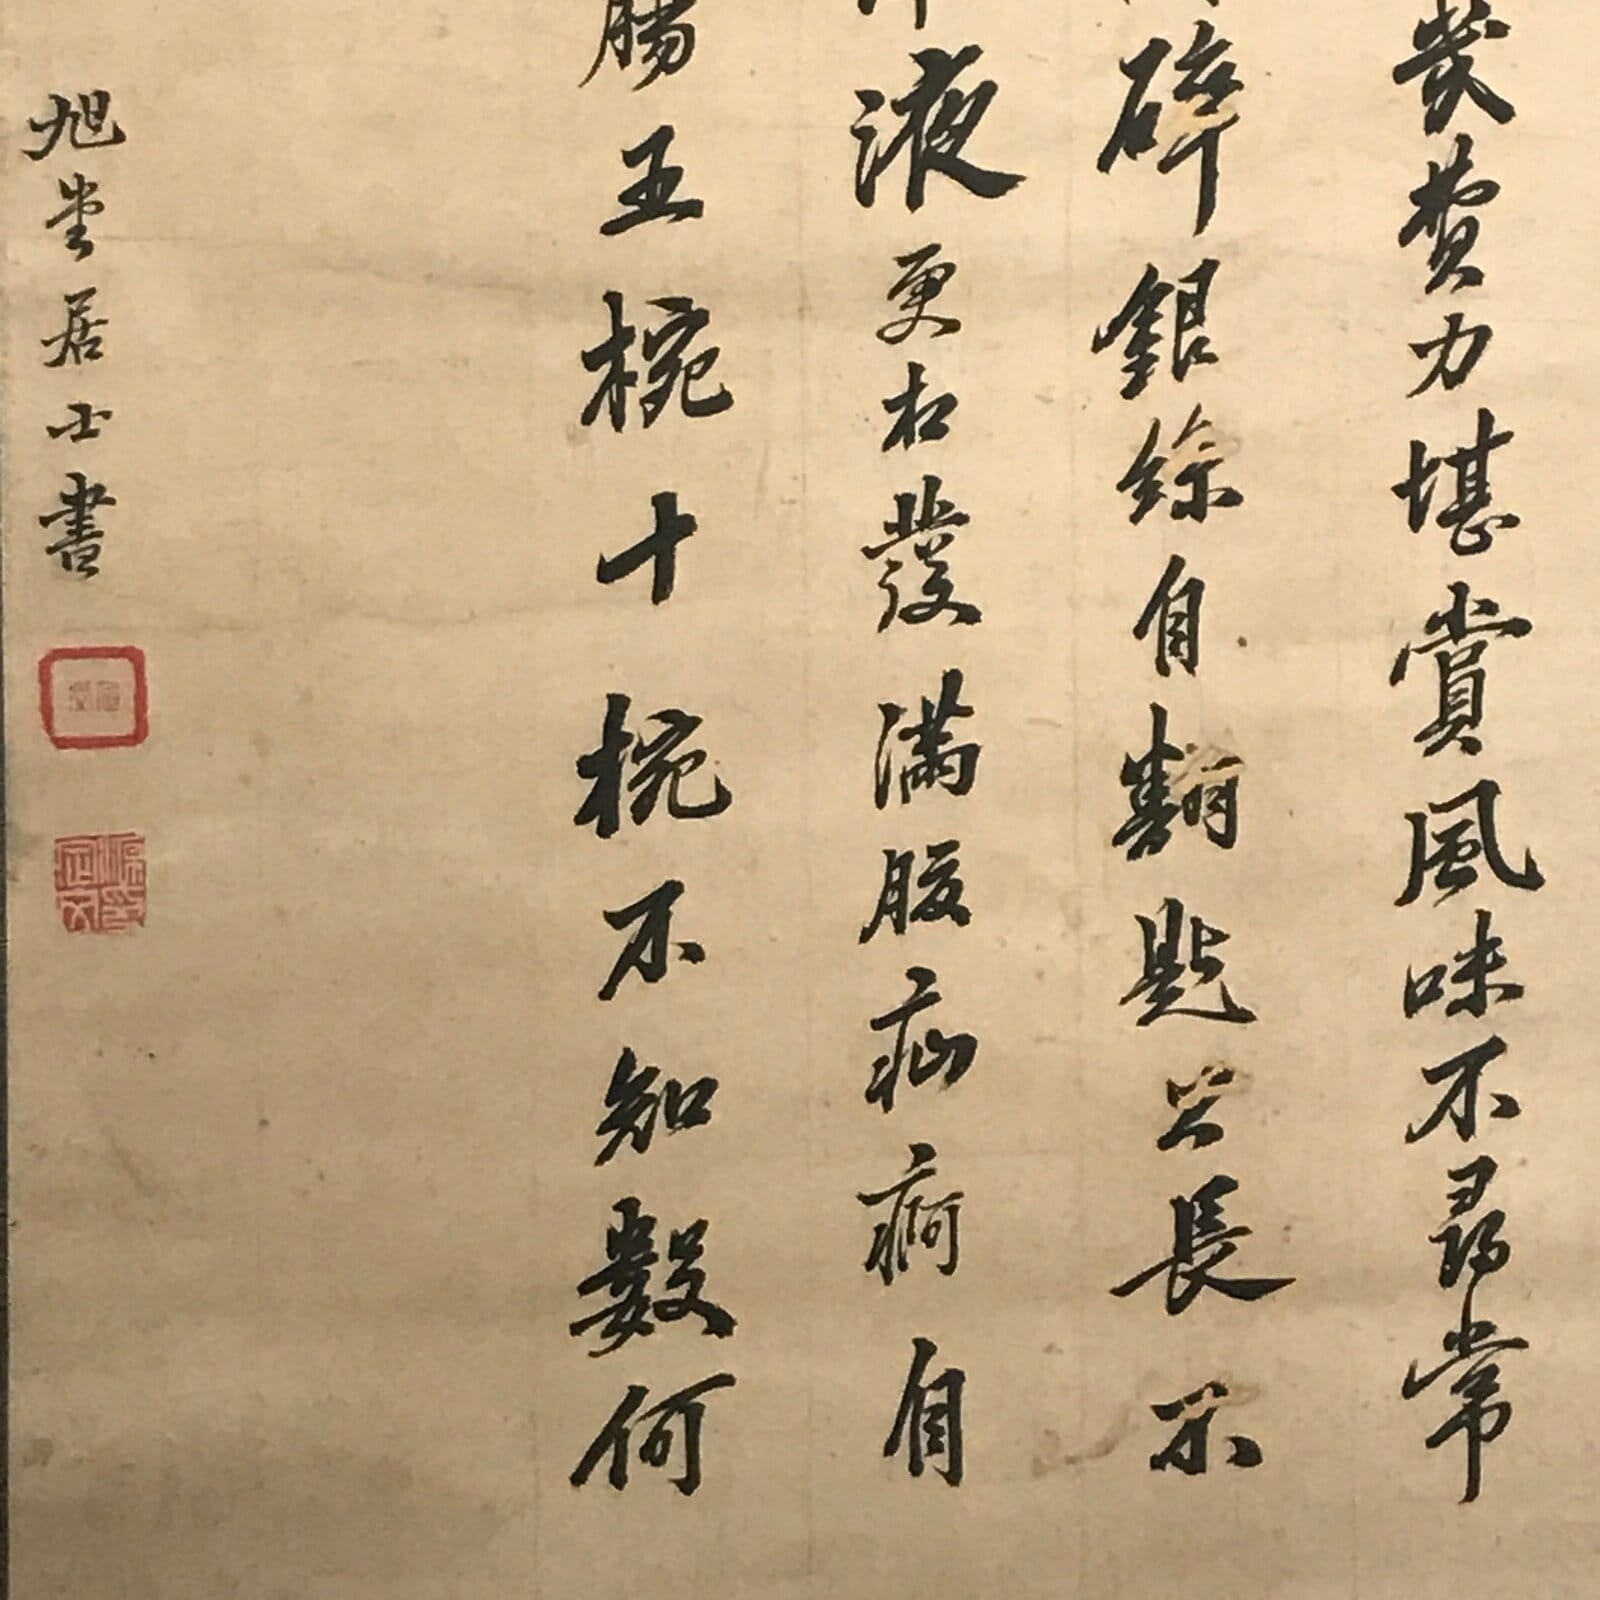 幾費力堪賞風味不尋常
碎銀線自翻匙只長不
液更扣發滿腹疝痾自
腸五椀十椀不知數何
旭堂居士書